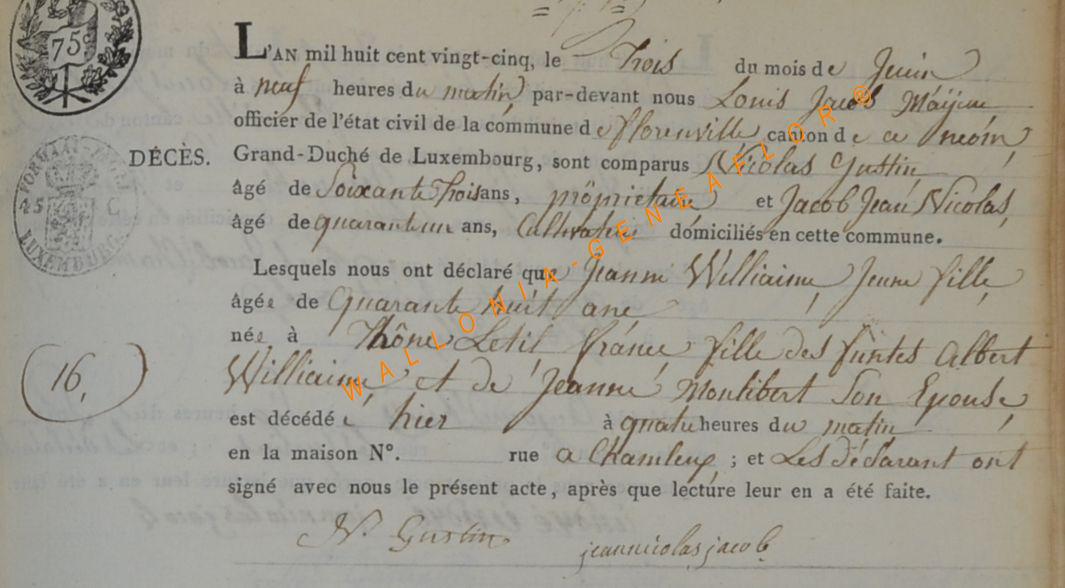 75c
L'AN mil huit cent vingt-cinq, le Trois du mois de Juin
à neuf heures du matin par-devant nous Louis Jacob
officier de l'état civil de la commune de florenville canton de ce nom
DÉCÈS. Grand-Duché de Luxembourg, sont comparus Nicolas Gustin
âgé de Soixante Trois ans, propriétaire et Jacob Jean Nicolas
âgé de quarante un ans, Cultivateur domiciliés en cette commune.
Lesquels nous ont déclaré que Jeanne Williaime Jeune fille
âgée de quarante huit ans
née à Thône Letil france fille des funtes Albert
16, Williaime et de Jeanne Monlibert Son Epouse
est décédée hier à quatre heures du matin
en la maison N°. rue a Chamleux ; et Les déclarant ont
signé avec nous le présent acte, après que lecture leur en a été faite.
N. Gustin jeannicolas jacob
FORMAAT
45 C
LUXEMBURG.
WALLONIA-GENEAFLOR®